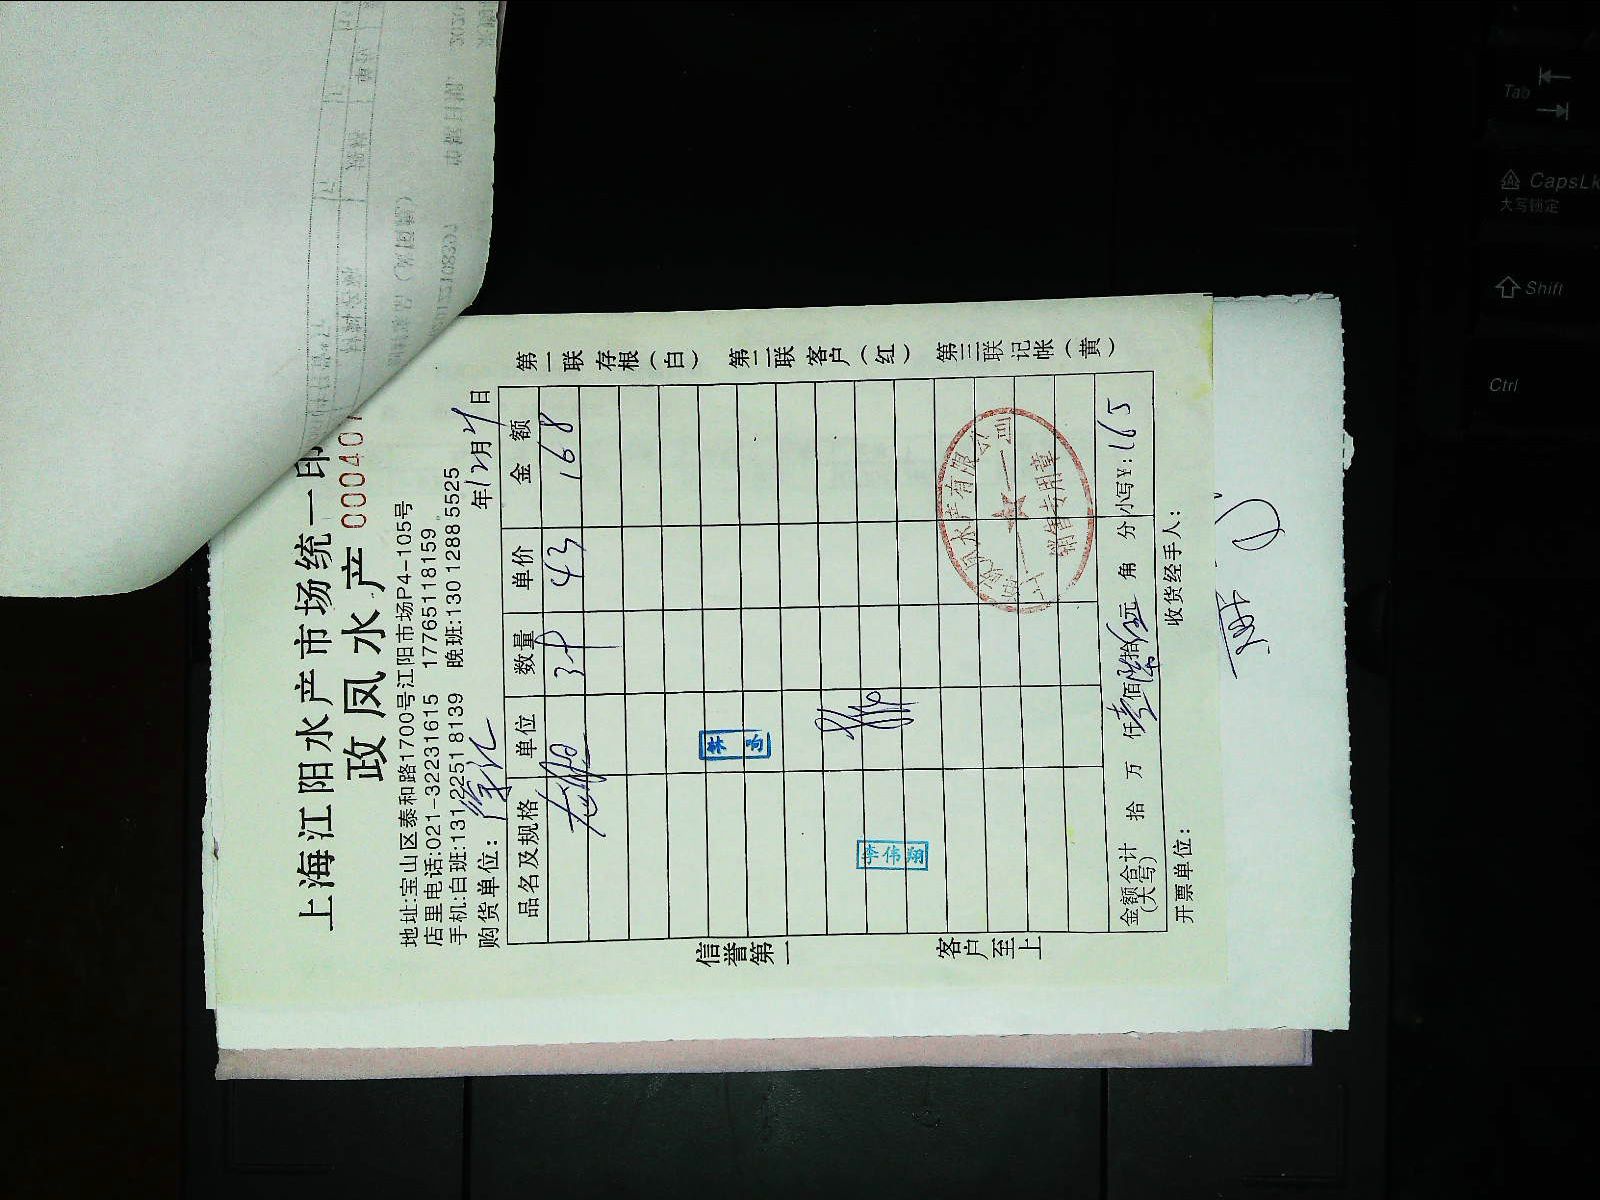 上海江阳水产市场统一印
政凤水产 000401
地址:宝山区泰和路1700号江阳市场P4-105号
店里电话:021-32231615 17765118159
手机:白班:131 2251 8139 晚班:130 1288 5525
购货单位: 年12月21日
品名及规格 单位 数量 单价 金额
43 168
朱
李伟翔
政凤水产有限公司
销售专用章
金额合计(大写) 拾 万 仟壹佰陆拾伍元 角 分 小写¥:165
开票单位: 收货经手人:
信誉第一 客户至上
第一联 存根(白) 第二联 客户(红) 第三联 记帐(黄)
Tab
CapsLk
大写锁定
Shift
Ctrl